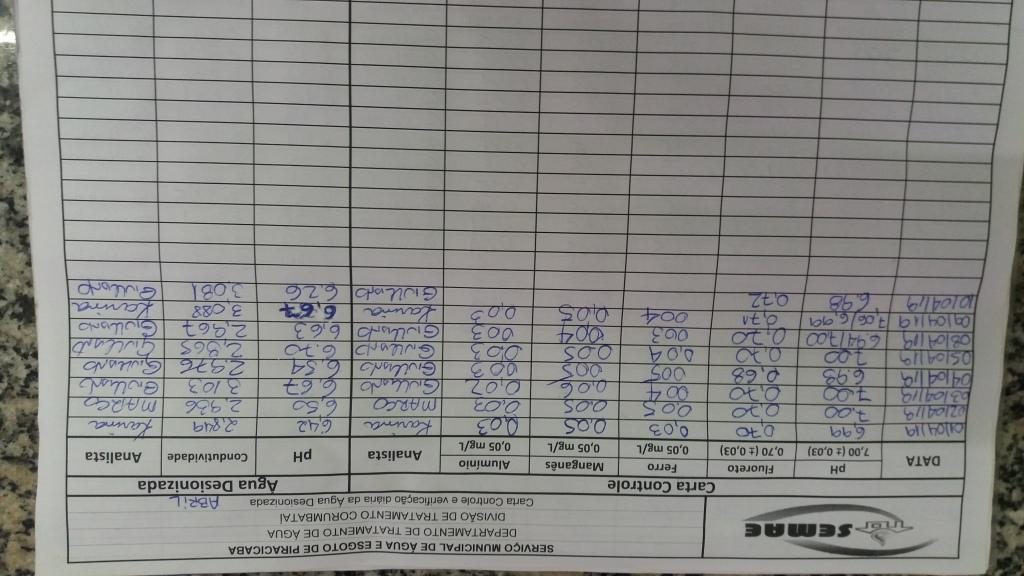 SEMAE
SERVIÇO MUNICIPAL DE ÁGUA E ESGOTO DE PIRACICABA
DEPARTAMENTO DE TRATAMENTO DE ÁGUA
DIVISÃO DE TRATAMENTO CORUMBATAÍ
Carta Controle e verificação diária da Água Desionizada ABRIL
Carta Controle Água Desionizada
DATA pH 7,00 (± 0,03) Fluoreto 0,70 (± 0,03) Ferro 0,05 mg/L Manganês 0,05 mg/L Alumínio 0,05 mg/L Analista pH Condutividade Analista
01/04/19 6,99 0,70 0,03 0,05 0,03 Karina 6,42 2,849 Karina
02/04/19 7,00 0,70 0,05 0,05 0,03 MARCO 6,50 2,936 MARCO
03/04/19 7,00 0,70 004 0,06 0,02 Giuliano 6,67 3,103 Giuliano
04/04/19 6,98 0,68 005 005 003 Giuliano 6,54 2,976 Giuliano
05/04/19 7,00 0,70 0,04 0,05 0,03 Giuliano 6,70 2,865 Giuliano
08/04/19 6,94/7,00 0,70 003 004 003 Giuliano 6,63 2,967 Giuliano
09/04/19 7,06/6,99 0,71 004 0,05 0,03 Karina 6,67 3,088 Karina
10/04/19 6,98 0,72 Giuliano 6,26 3,081 Giuliano